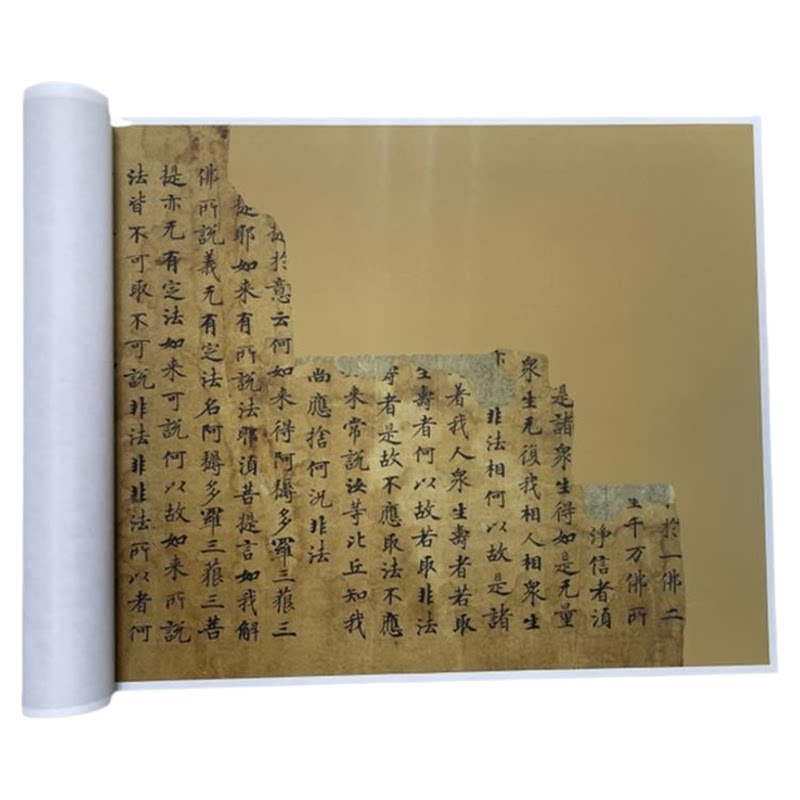 於一佛二
千万佛所
淨信者須
是諸衆生得如是无量
衆生无復我相人相衆生
非法相何以故是諸
著我人衆生壽者若取
生壽者何以故若取非法
者是故不應取法不應
来常說汝等比丘知我
尚應捨何況非法
於意云何如来得阿耨多羅三藐三
提耶如来有所說法耶須菩提言如我解
佛所說義无有定法名阿耨多羅三藐三菩
提亦无有定法如来可說何以故如来所說
法皆不可取不可說非法非非法所以者何